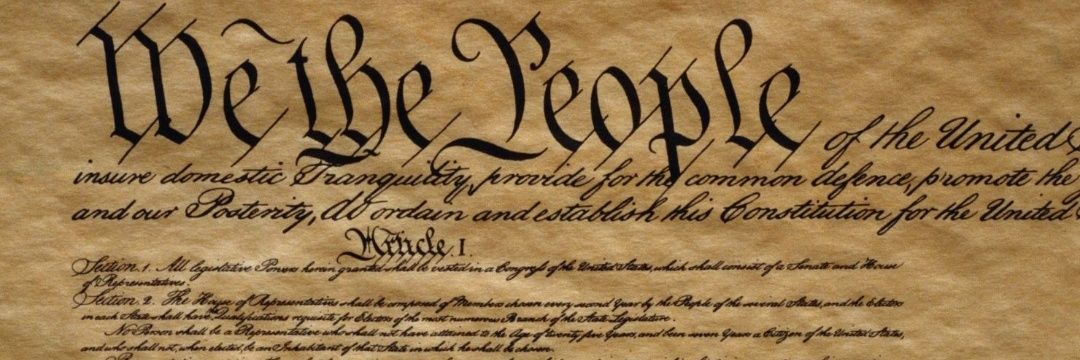 We the People of the United
insure domestic Tranquility, provide for the common defence, promote the
and our Posterity, do ordain and establish this Constitution for the United
Article. I.
Section. 1. All legislative Powers herein granted shall be vested in a Congress of the United States, which shall consist of a Senate and House
of Representatives.
Section. 2. The House of Representatives shall be composed of Members chosen every second Year by the People of the several States, and the Electors
in each State shall have Qualifications requisite for Electors of the most numerous Branch of the State Legislature.
No Person shall be a Representative who shall not have attained to the Age of twenty five Years, and been seven Years a Citizen of the United States,
and who shall not, when elected, be an Inhabitant of that State in which he shall be chosen.